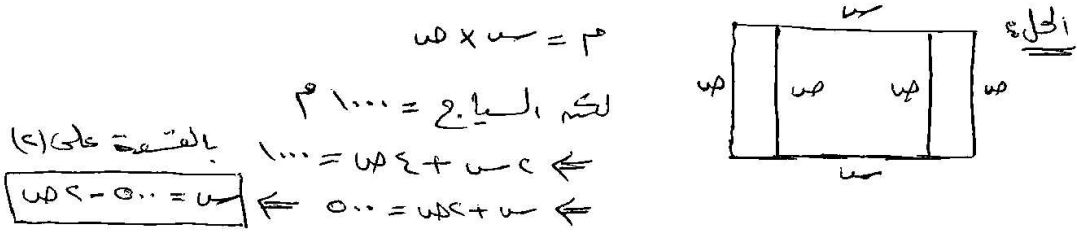 الحل:
س
ص ص ص ص
س
م = س × ص
لكن السياج = ١٠٠٠ م
⇐ ٢ س + ٤ ص = ١٠٠٠ بالقسمة على (٢)
⇐ س + ٢ ص = ٥٠٠ ⇐ س = ٥٠٠ - ٢ ص